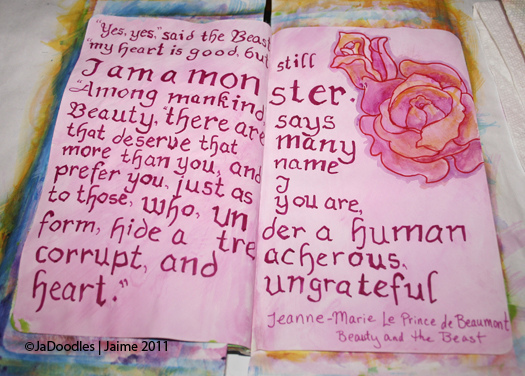 "Yes, yes," said the Beast
"my heart is good, but still
I am a mon ster.
"Among mankind says
Beauty, "there are many
that deserve that name
more than you, and I
prefer you, just as you are,
to those, who, un der a human
form, hide a tre acherous,
corrupt, and ungrateful
heart."
Jeanne-Marie Le Prince de Beaumont
Beauty and the Beast
©JaDoodles | Jaime 2011